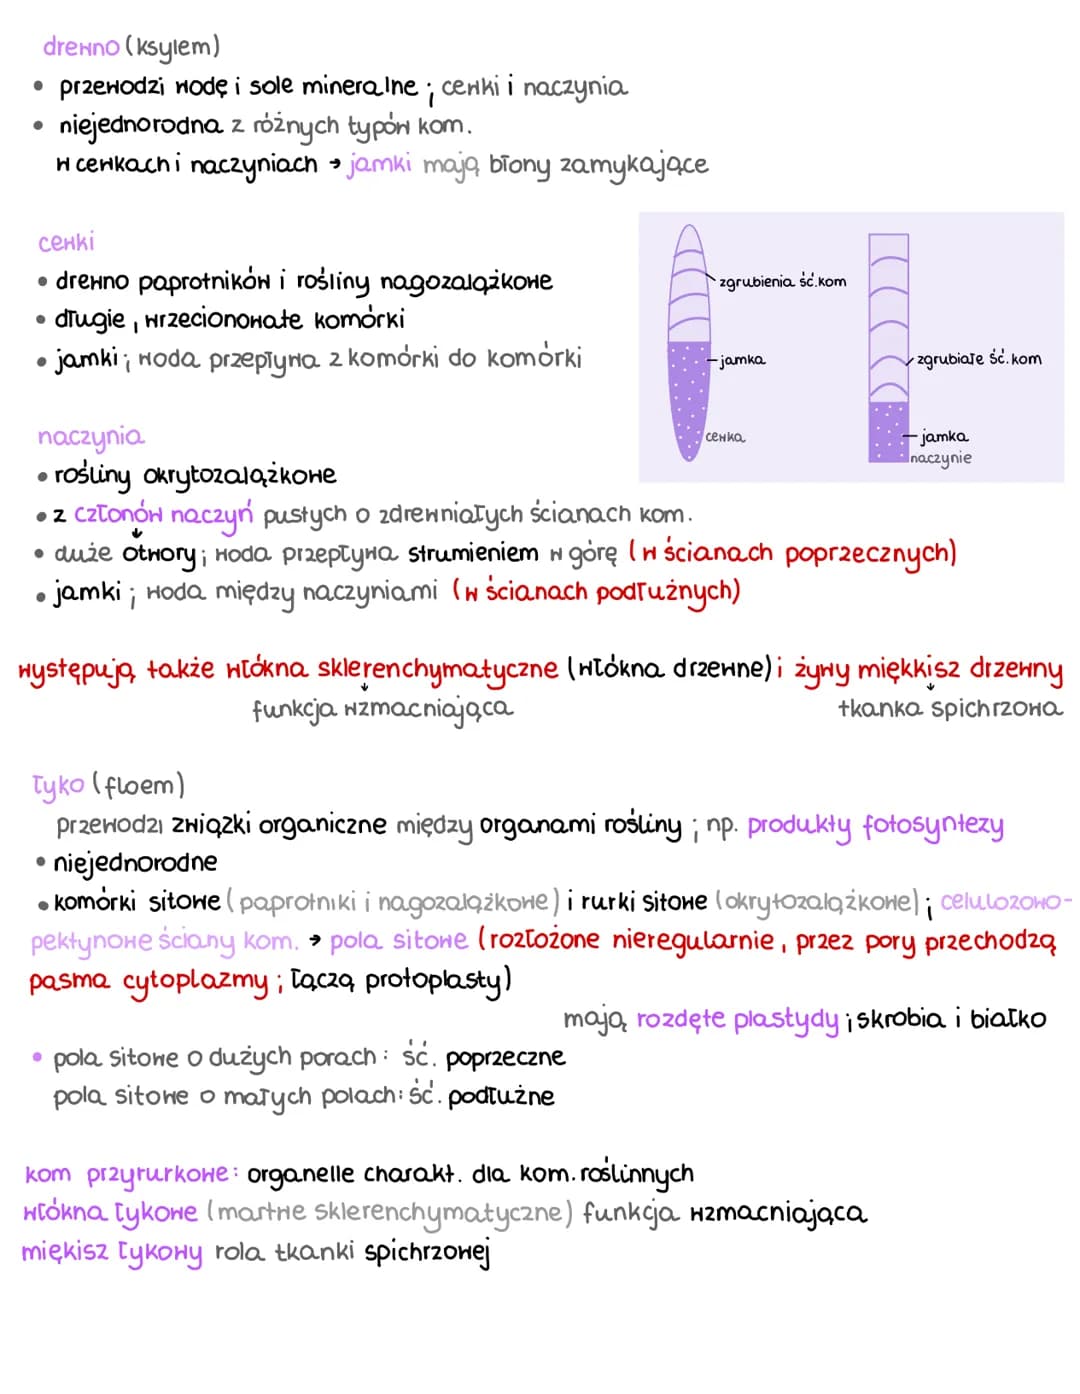 drewno (ksylem)
• przewodzi wodę i sole mineralne ; cewki i naczynia
• niejednorodna z różnych typów kom.
w cewkach i naczyniach → jamki mają błony zamykające
cewki
• drewno paprotników i rośliny nagozalążkowe
• długie , wrzecionowate komórki
• jamki ; woda przepływa z komórki do komórki
zgrubienia ść.kom
jamka
cewka
zgrubiałe ść.kom
jamka
naczynie
naczynia
• rośliny okrytozalążkowe
• z członów naczyń pustych o zdrewniałych ścianach kom.
• duże otwory ; woda przepływa strumieniem w górę (w ścianach poprzecznych)
• jamki ; woda między naczyniami (w ścianach podłużnych)
występują także włókna sklerenchymatyczne (włókna drzewne) i żywy miękkisz drzewny
funkcja wzmacniająca
tkanka spichrzowa
łyko (floem)
przewodzi związki organiczne między organami rośliny ; np. produkty fotosyntezy
• niejednorodne
• komórki sitowe (paprotniki i nagozalążkowe) i rurki sitowe (okrytozalążkowe) ; celulozowo-
pektynowe ściany kom. → pola sitowe (rozłożone nieregularnie , przez pory przechodzą
pasma cytoplazmy ; łączą protoplasty)
mają rozdęte plastydy ; skrobia i białko
• pola sitowe o dużych porach : ść. poprzeczne
pola sitowe o małych polach : ść. podłużne
kom przyrurkowe : organelle charakt. dla kom. roślinnych
włókna łykowe (martwe sklerenchymatyczne) funkcja wzmacniająca
miękisz łykowy rola tkanki spichrzowej